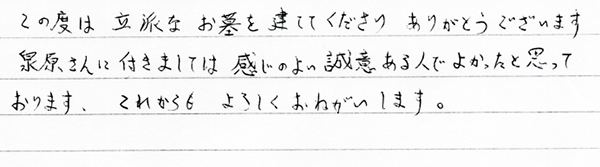 この度は 立派な お墓を 建ててくださり ありがとうございます
泉原さんに付きましては 感じのよい 誠意ある人で よかったと思って
おります、 これからも よろしく おねがいします。